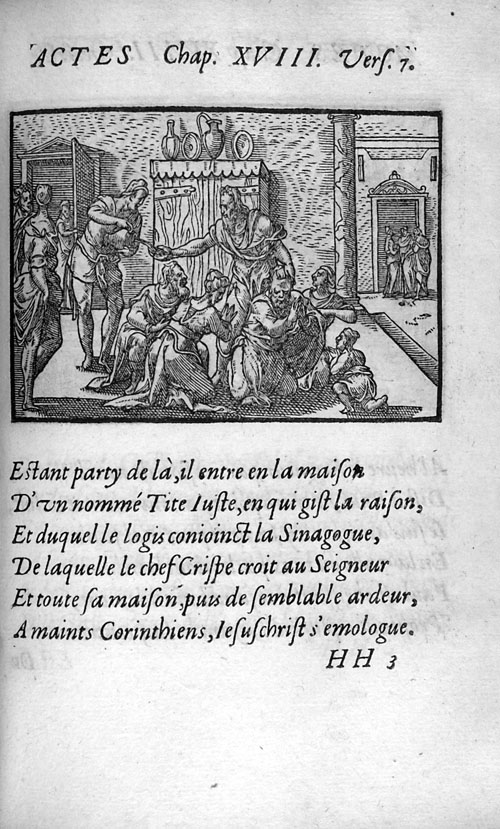 ACTES Chap. XVIII. Vers. 7.
Estant party de là, il entre en la maison
D'vn nommé Tite Iuste, en qui gist la raison,
Et duquel le logis conioinct la Sinagogue,
De laquelle le chef Crispe croit au Seigneur
Et toute sa maison, puis de semblable ardeur,
A maints Corinthiens, Iesuschrist s'emologue.
HH 3